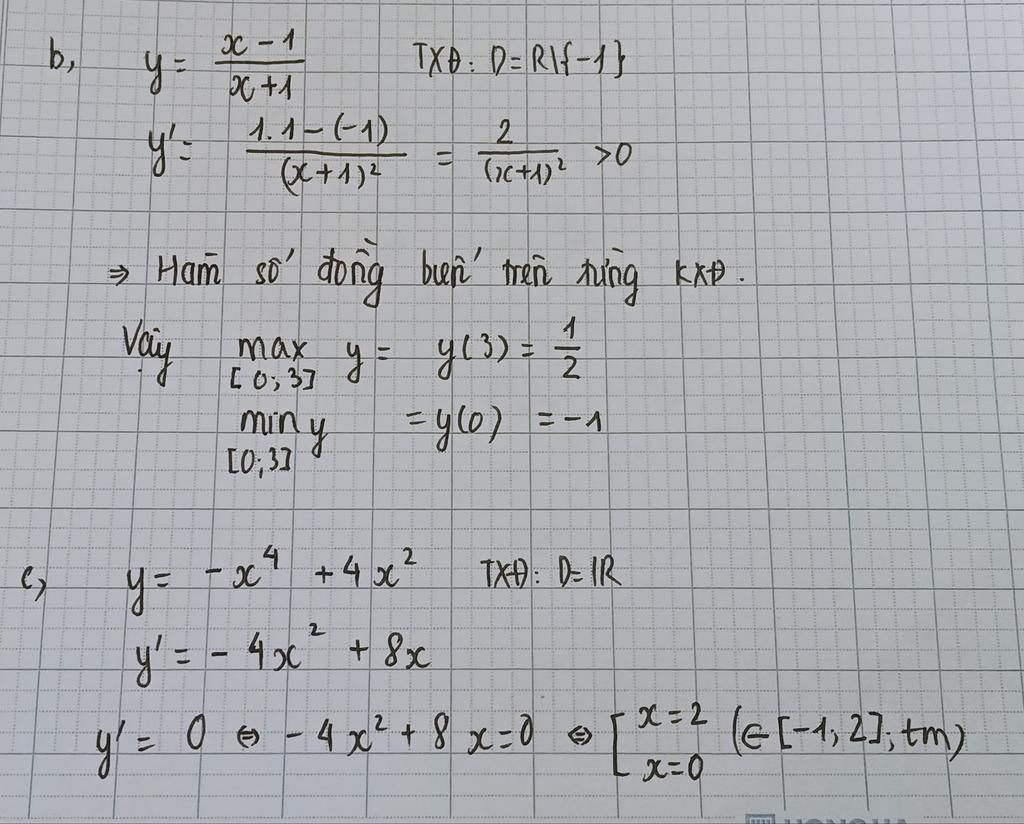 b, y = \frac{x-1}{x+1} TXĐ: D = R\{-1}
y' = \frac{1.1-(-1)}{(x+1)^2} = \frac{2}{(x+1)^2} > 0
⇒ Hàm số đồng biến trên từng KXĐ.
Vậy max_{[0;3]} y = y(3) = \frac{1}{2}
min_{[0;3]} y = y(0) = -1
c, y = -x^4 + 4x^2 TXĐ: D = ℝ
y' = -4x^2 + 8x
y' = 0 ⇔ -4x^2 + 8x = 0 ⇔ [ x = 2, x = 0 (∈ [-1, 2]; tm)